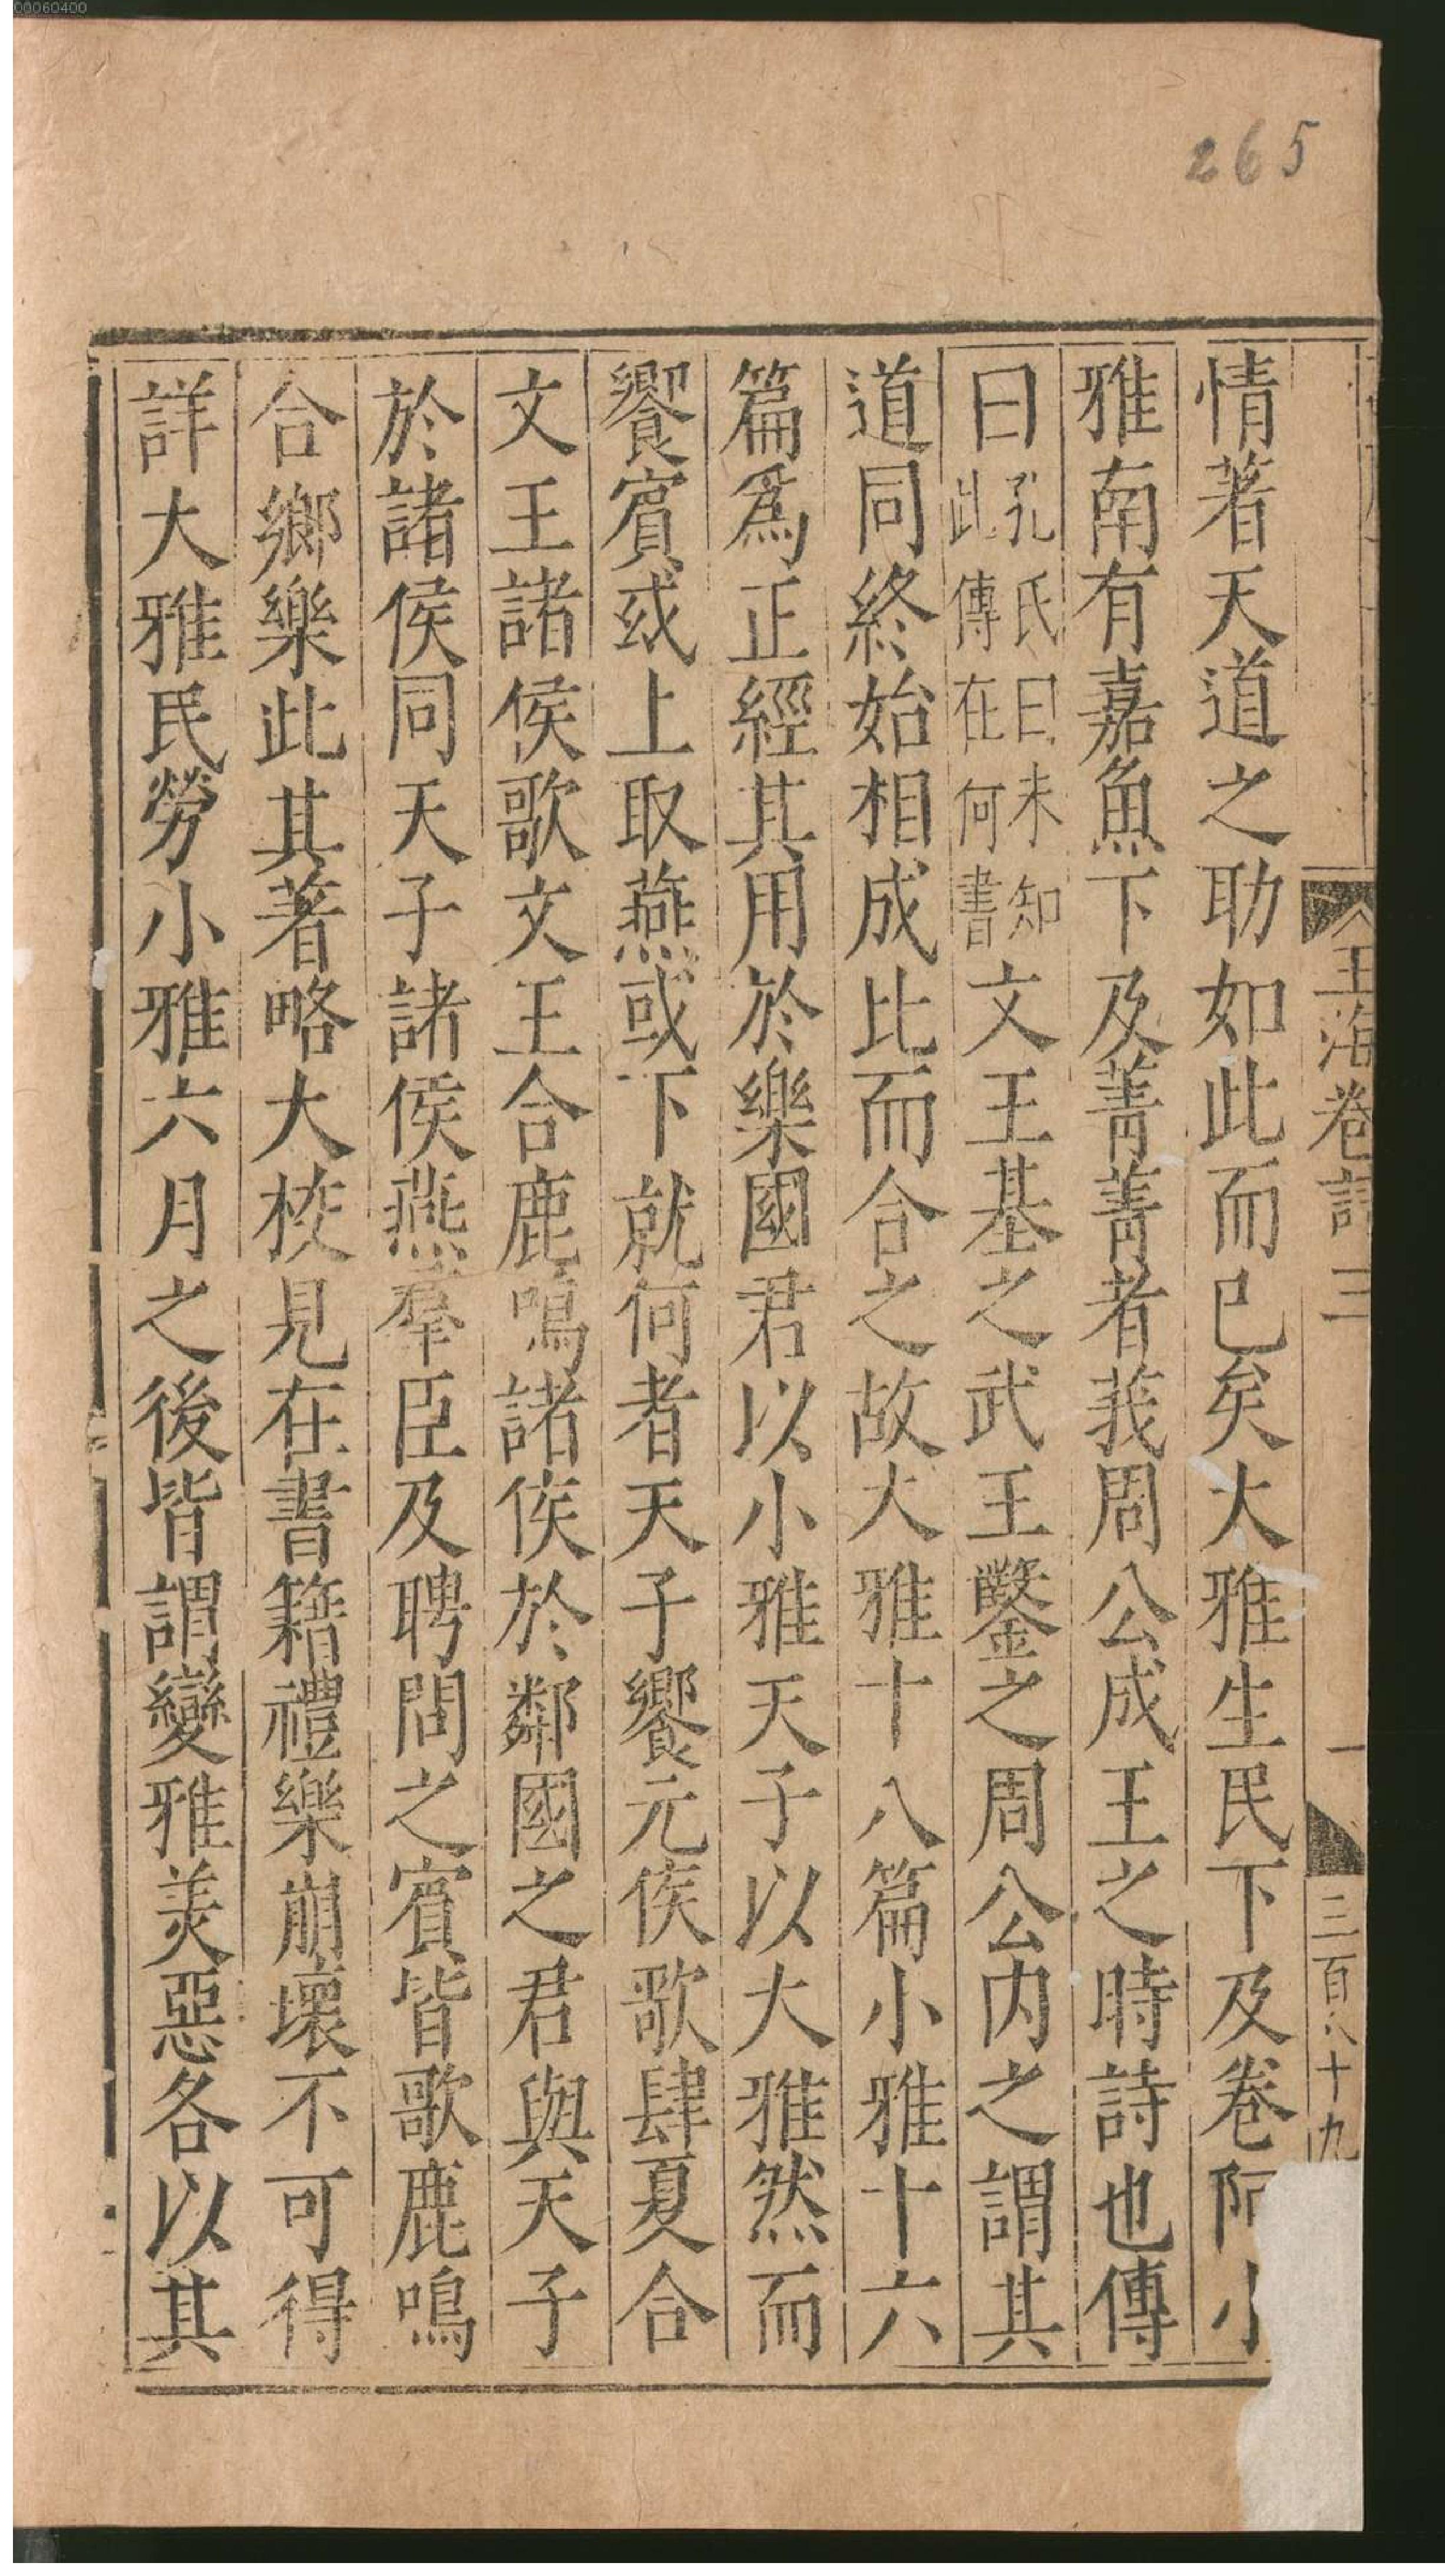 00060400
265
玉海卷詩三
一
三百八十九
情著天道之助如此而已矣大雅生民下及卷阿小
雅南有嘉魚下及菁菁者莪周公成王之時詩也傳
曰孔氏曰未知此傳在何書文王基之武王鑿之周公内之謂其
道同終始相成比而合之故大雅十八篇小雅十六
篇爲正經其用於樂國君以小雅天子以大雅然而
饗賓或上取燕或下就何者天子饗元侯歌肆夏合
文王諸侯歌文王合鹿鳴諸侯於鄰國之君與天子
於諸侯同天子諸侯燕羣臣及聘問之賓皆歌鹿鳴
合鄉樂此其著略大校見在書籍禮樂崩壞不可得
詳大雅民勞小雅六月之後皆謂變雅美惡各以其